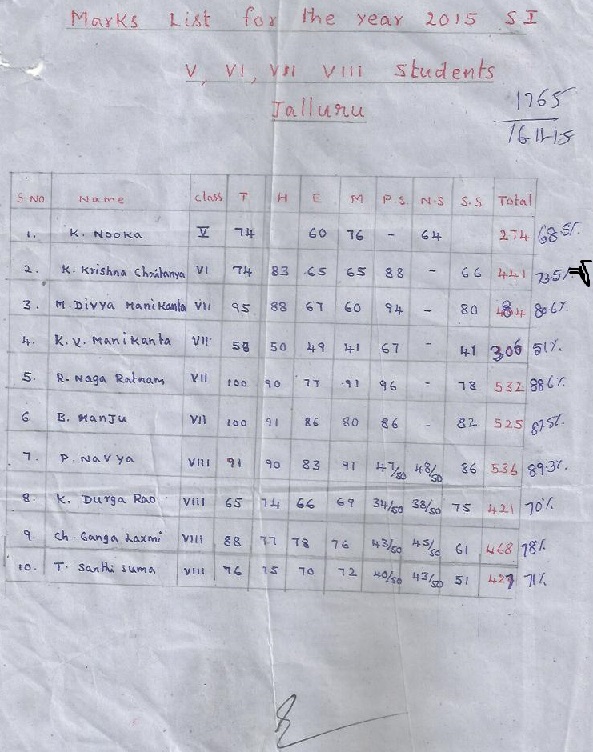 Marks List for the year 2015 SI
V, VI, VII VIII Students
Jalluru
1765
S.NO Name class T H E M P.S. N.S S.S. Total
1. K. Nooka V 74 60 76 - 64 274 68.5%
2. K. Krishna Chaitanya VI 74 83 65 65 88 - 66 441 73.5%
3. M. Divya Manikanta VII 95 88 67 60 94 - 80 484 80.6%
4. K.V. Manikanta VII 58 50 49 41 67 - 41 306 51%
5. R. Naga Ratnam VII 100 90 77 91 96 - 78 532 88.6%
6 B. Manju VII 100 91 86 80 86 - 82 525 87.5%
7. P. Navya VIII 91 90 83 91 47/50 48/50 86 536 89.3%
8. K. Durga Rao VIII 65 74 66 69 34/50 38/50 75 421 70%
9 Ch. Ganga Laxmi VIII 88 77 78 76 43/50 45/50 61 468 78%
10. T. Santhi Suma VIII 76 75 70 72 40/50 43/50 51 427 71%